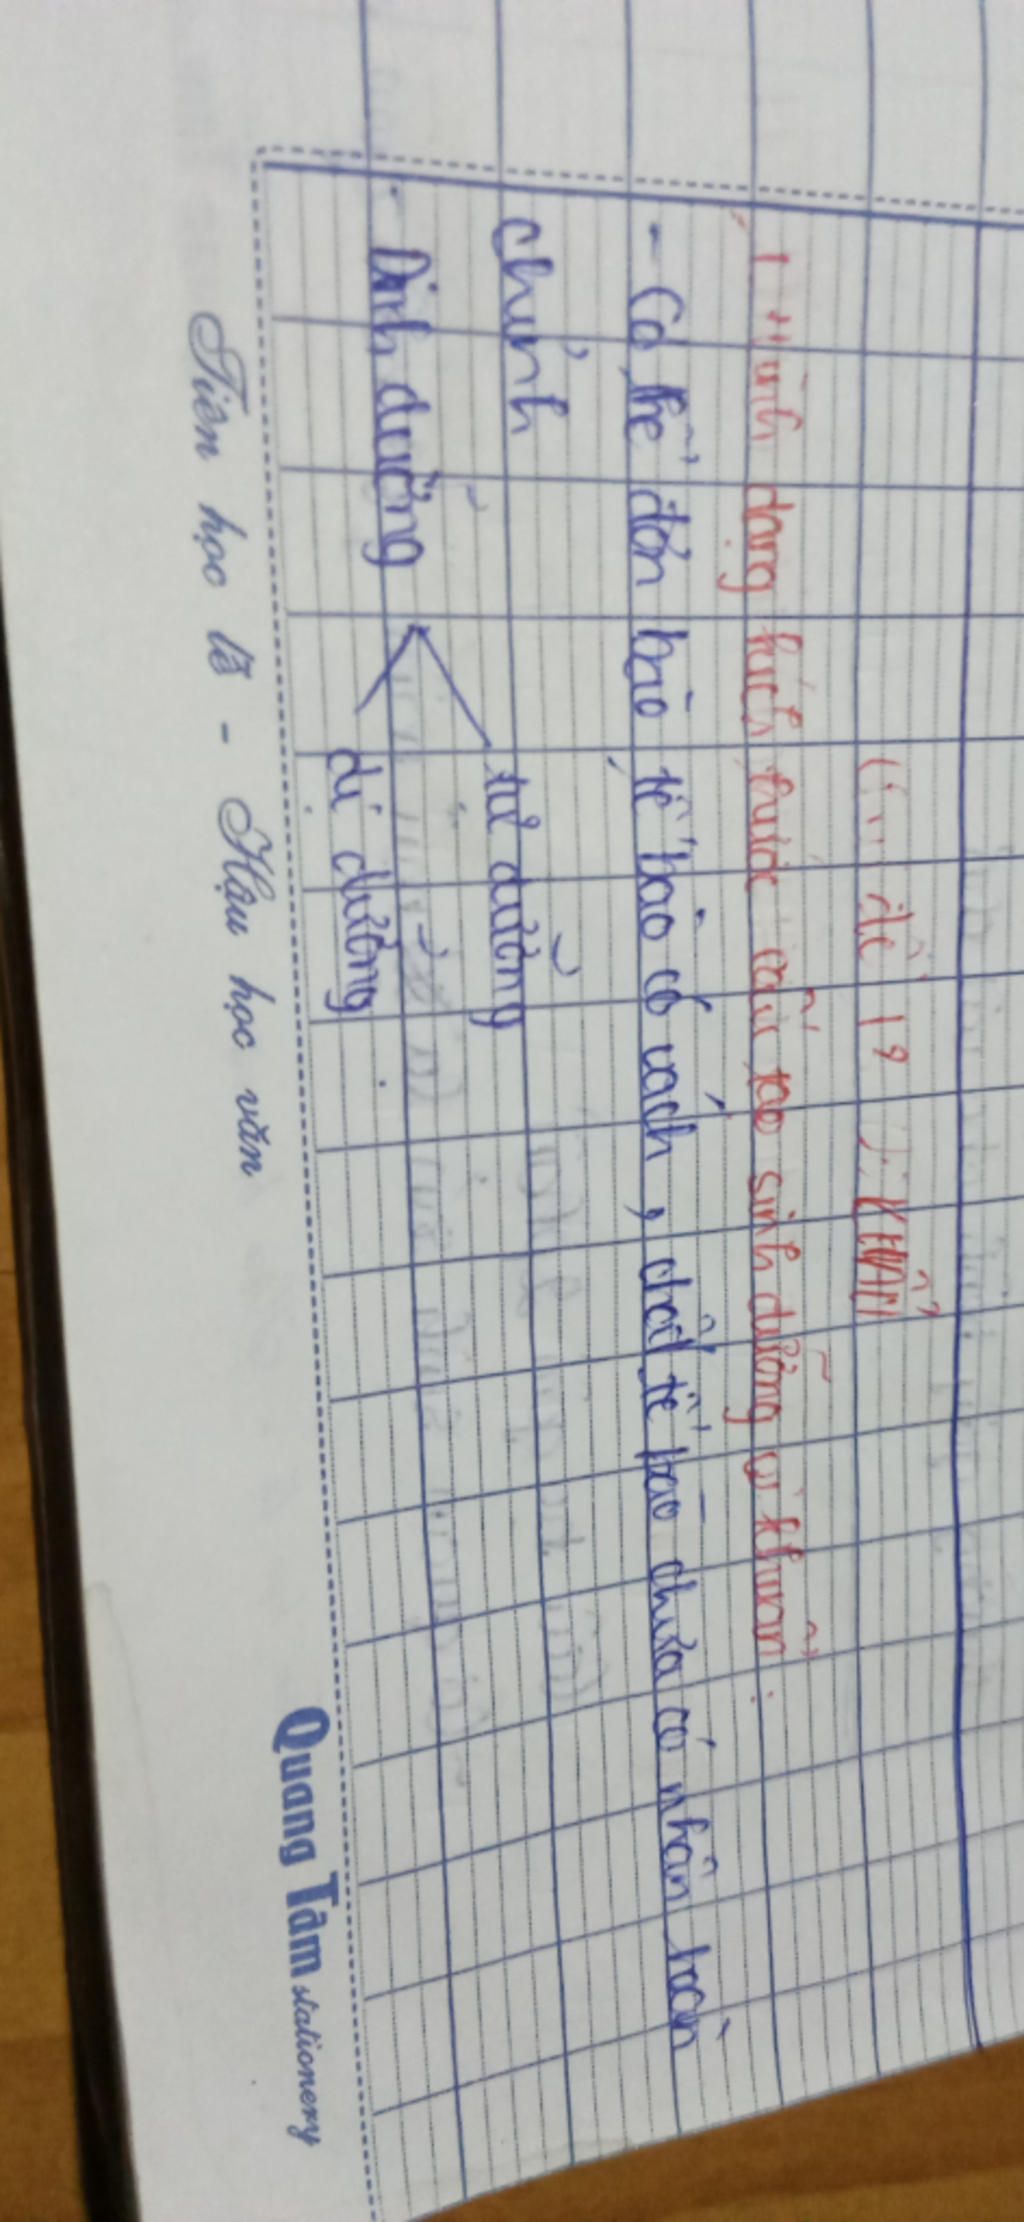 đề 19 VI KHUẨN
1 Hình dạng kích thước cấu tạo sinh dưỡng vi khuẩn.
- Cơ thể đơn bào, tế bào có vách, chất tế bào chưa có nhân hoàn
chỉnh
- Dinh dưỡng
tự dưỡng
dị dưỡng.
Tiên học lễ - Hậu học văn
Quang Tâm stationery